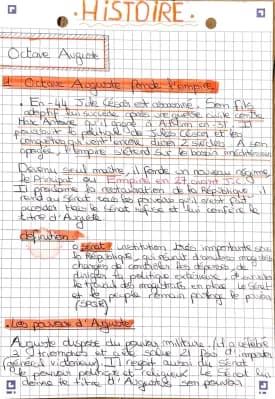 • HISTOIRE •
Octave Auguste
1. Octave Auguste fonde l'empire.
• En -44 J de César est assassiné. Son fils
adoptif lui succède après une guerre civile contre
Marc Antoine qu'il gagne à Actium en 31. Il
poursuit la politique de Jules César et les
conquêtes qui vont encore durer 2 siècles. A son
apogée, l'empire s'étend sur le bassin méditerranéen
Devenu seul maître, il fonde un nouveau régime
le Principat ou Empire en 27 avant J.C. !
Il proclame la restauration de la République, il
rend au Sénat tous les pouvoirs qu'il avait
accordés mais le Sénat refuse et lui confère le
titre d'Auguste.
définition :
o sénat : institution très importante sous
la République, qui réunit d'anciens magistrats
chargés de contrôler les dépenses, de
diriger la politique extérieure, de
le travail des magistrats en place. Le Sénat
et le peuple romain protège le pouvoir
(SPQR)
• Les pouvoirs d'Auguste
Auguste dispose du pouvoir militaire (il a célébré
3 triomphes et a été salué 21 fois d'imperator
(général victorieux). Il reçoit aussi du Sénat
le pouvoir politique et religieux. Le Sénat lui
donne le titre d'Auguste, son pouvoir